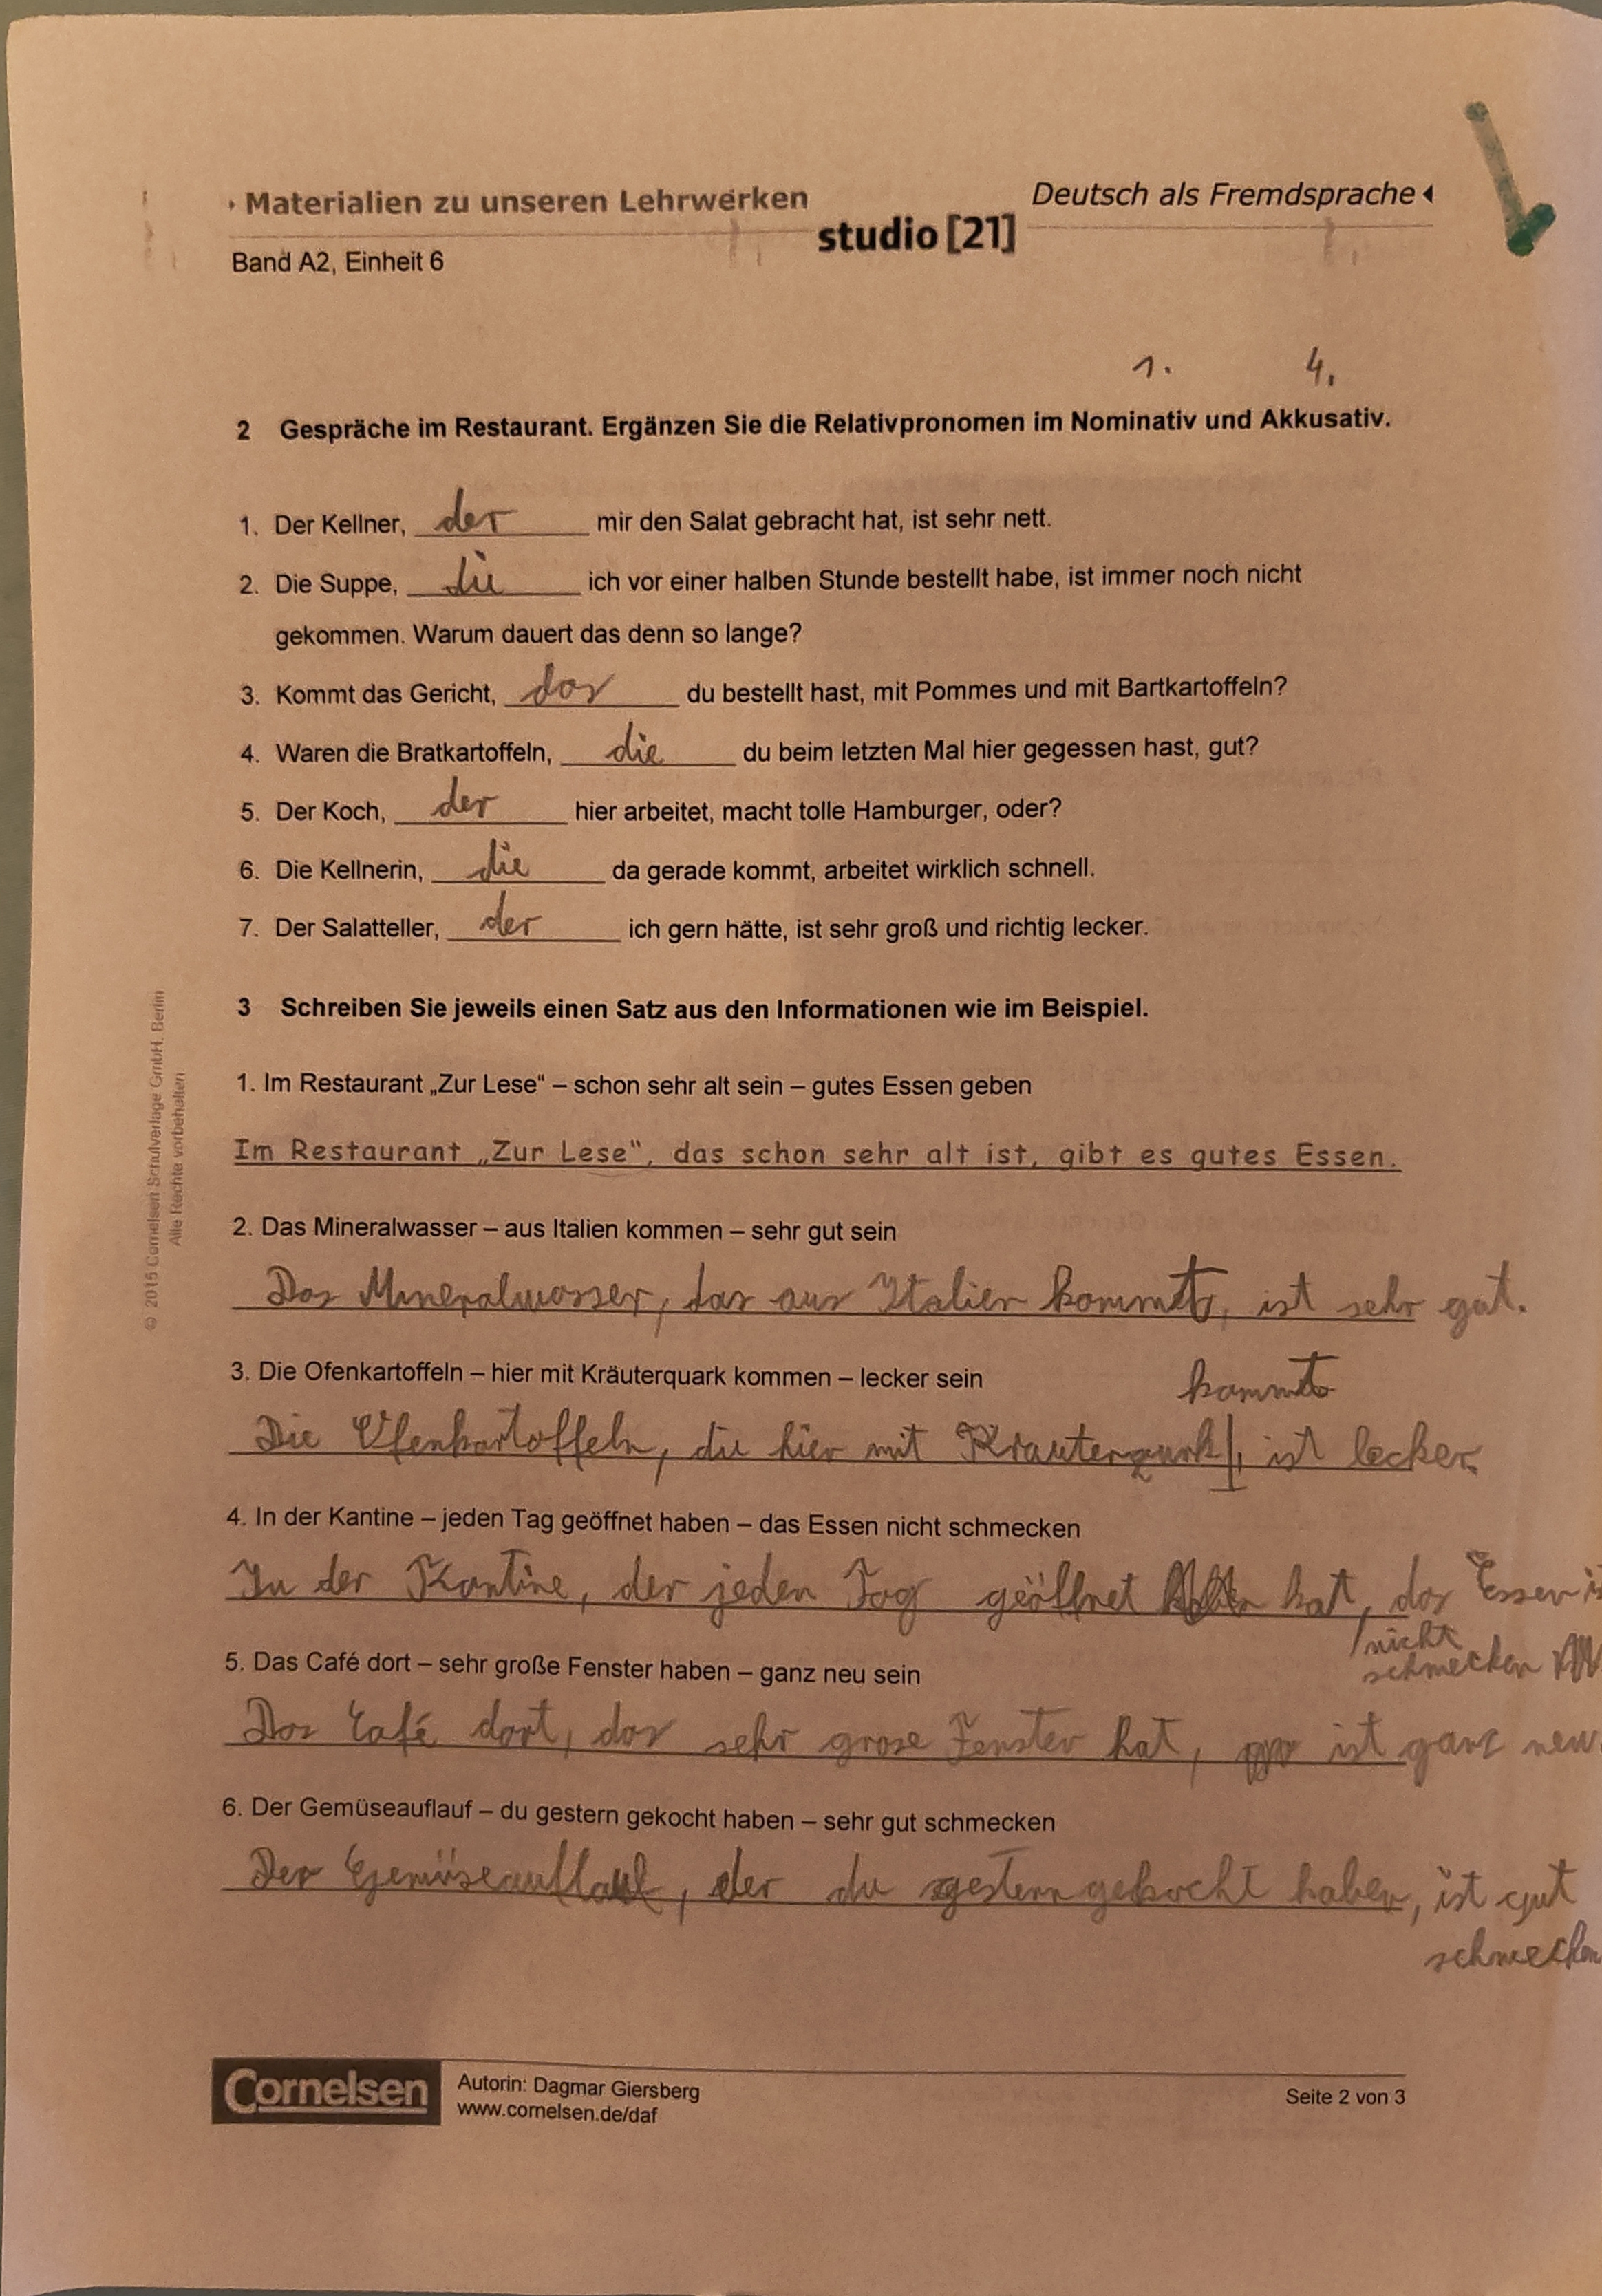 Materialien zu unseren Lehrwerken
Deutsch als Fremdsprache
studio [21]
Band A2, Einheit 6
1. 4.
2 Gespräche im Restaurant. Ergänzen Sie die Relativpronomen im Nominativ und Akkusativ.
1. Der Kellner, der mir den Salat gebracht hat, ist sehr nett.
2. Die Suppe, die ich vor einer halben Stunde bestellt habe, ist immer noch nicht
gekommen. Warum dauert das denn so lange?
3. Kommt das Gericht, das du bestellt hast, mit Pommes und mit Bartkartoffeln?
4. Waren die Bratkartoffeln, die du beim letzten Mal hier gegessen hast, gut?
5. Der Koch, der hier arbeitet, macht tolle Hamburger, oder?
6. Die Kellnerin, die da gerade kommt, arbeitet wirklich schnell.
7. Der Salatteller, der ich gern hätte, ist sehr groß und richtig lecker.
3 Schreiben Sie jeweils einen Satz aus den Informationen wie im Beispiel.
1. Im Restaurant „Zur Lese“ – schon sehr alt sein – gutes Essen geben
Im Restaurant „Zur Lese“, das schon sehr alt ist, gibt es gutes Essen.
2. Das Mineralwasser – aus Italien kommen – sehr gut sein
Das Mineralwasser, das aus Italien kommt, ist sehr gut.
3. Die Ofenkartoffeln – hier mit Kräuterquark kommen – lecker sein
kommt
Die Ofenkartoffeln, die hier mit Krauterqurk, ist lecker.
4. In der Kantine – jeden Tag geöffnet haben – das Essen nicht schmecken
In der Kantine, der jeden Tag geöffnet hat, das Essen
nicht
schmecken
5. Das Café dort – sehr große Fenster haben – ganz neu sein
Das Café dort, das sehr grose Fenster hat, ist ganz neu.
6. Der Gemüseauflauf – du gestern gekocht haben – sehr gut schmecken
Der Gemüseauflauf, der du gestern gekocht haben, ist gut
schmecken
© 2015 Cornelsen Schulverlage GmbH, Berlin
Alle Rechte vorbehalten
Cornelsen
Autorin: Dagmar Giersberg
www.cornelsen.de/daf
Seite 2 von 3